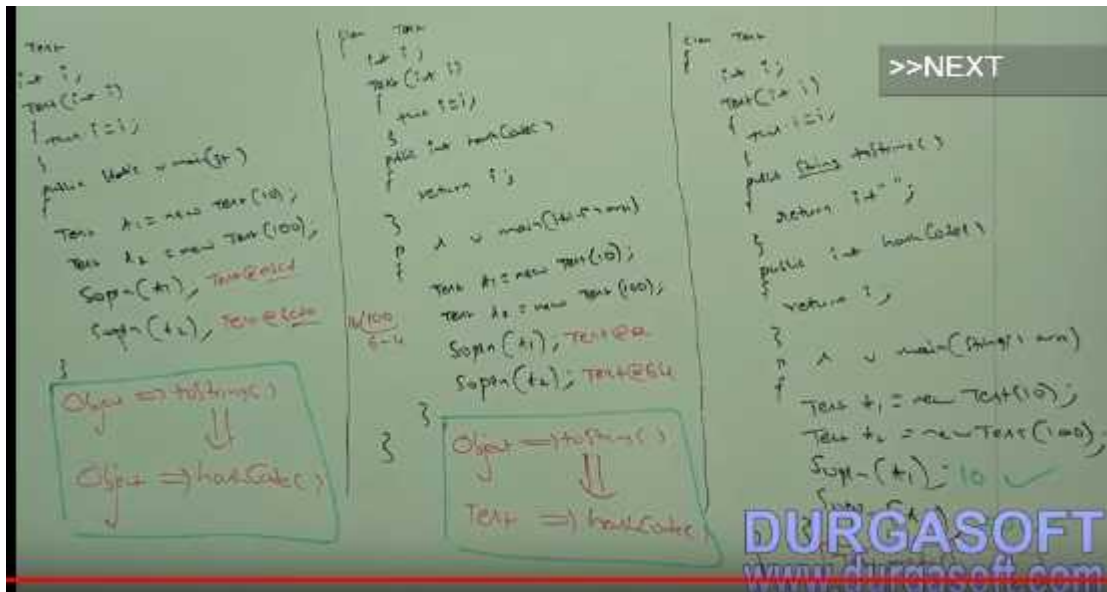 Test
int i;
Test(int i)
{
this.i=i;
}
public static v main(
{
Test t1 = new Test(10);
Test t2 = new Test(100);
Sopln(t1);
Sopln(t2);
}
Object => toString()
Object => hashCode()
class Test
int i;
Test(int i)
{
this.i=i;
}
public int hashCode()
{
return i;
}
p s v main(
{
Test t1 = new Test(10);
Test t2 = new Test(100);
16|100
6-4
Sopln(t1); Test@a
Sopln(t2); Test@64
}
}
Object => toString()
Test => hashCode()
class Test
{
int i;
Test(int i)
{
this.i=i;
}
public String toString()
{
return i+" ";
}
public int hashCode()
{
return i;
}
p s v main(String[] args)
{
Test t1 = new Test(10);
Test t2 = new Test(100);
Sopln(t1); 10 ✓
>>NEXT
DURGASOFT
www.durgasoft.com